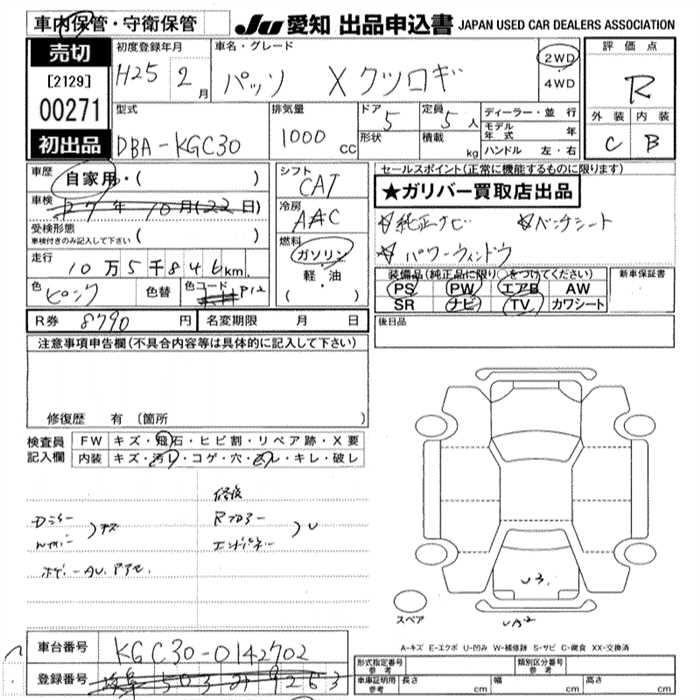 車内保管・守衛保管
JU 愛知 出品申込書 JAPAN USED CAR DEALERS ASSOCIATION
売切
[2129]
00271
初出品
初度登録年月
H25 2月
車名・グレード
パッソ Xクツロギ
2WD
・4WD
評価点
R
外装 内装
C B
型式
DBA-KGC30
排気量
1000 cc
ドア 5
形状
定員 5人
積載 kg
ディーラー・並行
モデル年式 年
ハンドル 左・右
車歴 自家用・( )
車検 27年10月(22日)
受検形態
車検付きのみ記入して下さい ( )
走行 10万5千846km
色 ピンク 色替 色コード P12
シフト
CAT
冷房
AAC
燃料
ガソリン
軽・油
( )
セールスポイント(正常に機能するものに限ります)
★ガリバー買取店出品
☆純正ナビ ☆ベンチシート
☆パワーウィンドウ
装備品(純正品に限り○をつけてください)
PS PW エアB AW
SR ナビ TV カワシート
新車保証書
後日品
R券 8790円 名変期限 月 日
注意事項申告欄(不具合内容等は具体的に記入して下さい)
修復歴 有(箇所 )
検査員記入欄
FW キズ・飛石・ヒビ割・リペア跡・X要
内装 キズ・汚レ・コゲ・穴・スレ・キレ・破レ
修復
キズ
U
U3
UA2
スペア
A-キズ E-エクボ U-凹み W-補修跡 S-サビ C-腐食 XX-交換済
車台番号 KGC30-0142702
登録番号
形式指定番号 参考
類別区分番号 参考
車庫証明用 参考 長さ cm 幅 cm 高さ cm